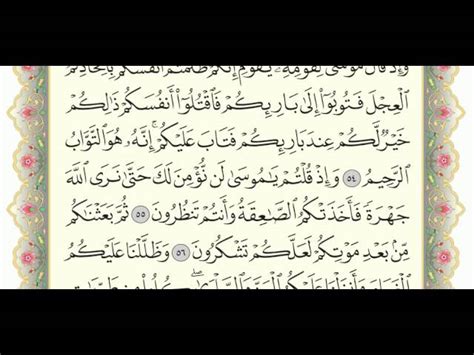 وَإِذْ قَالَ مُوسَىٰ لِقَوْمِهِۦ يَٰقَوْمِ إِنَّكُمْ ظَلَمْتُمْ أَنفُسَكُم بِٱتِّخَاذِكُمُ
ٱلْعِجْلَ فَتُوبُوٓا۟ إِلَىٰ بَارِئِكُمْ فَٱقْتُلُوٓا۟ أَنفُسَكُمْ ذَٰلِكُمْ
خَيْرٌ لَّكُمْ عِندَ بَارِئِكُمْ فَتَابَ عَلَيْكُمْ ۚ إِنَّهُۥ هُوَ ٱلتَّوَّابُ
ٱلرَّحِيمُ ٥٤ وَإِذْ قُلْتُمْ يَٰمُوسَىٰ لَن نُّؤْمِنَ لَكَ حَتَّىٰ نَرَى ٱللَّهَ
جَهْرَةً فَأَخَذَتْكُمُ ٱلصَّٰعِقَةُ وَأَنتُمْ تَنظُرُونَ ٥٥ ثُمَّ بَعَثْنَٰكُم
مِّنۢ بَعْدِ مَوْتِكُمْ لَعَلَّكُمْ تَشْكُرُونَ ٥٦ وَظَلَّلْنَا عَلَيْكُمُ
ٱلْغَمَامَ وَأَنزَلْنَا عَلَيْكُمُ ٱلْمَنَّ وَٱلسَّلْوَىٰ ۖ كُلُوا۟ مِن طَيِّبَٰتِ